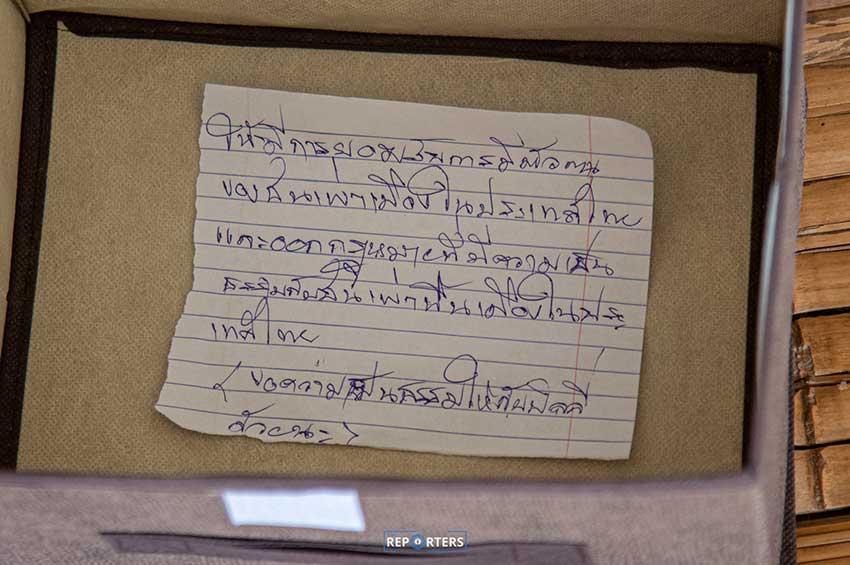 ให้มีการยอมรับการมีตัวตน
ของชนเผ่าเมืองในประเทศไทย
และออกกฎหมายที่มีความเป็น
ธรรมกับชนเผ่าพื้นเมืองในประ
เทศไทย
(ขอความเป็นธรรมให้กับบิลลี่
ด้วยนะ)
REPORTERS